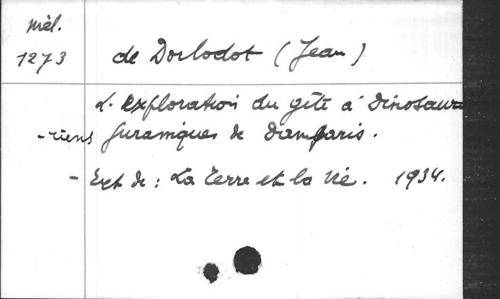 Mél.
1273
de Dorlodot (Jean)
L'Exploration du gîte à Dinosau
-riens Jurassiques de Damparis.
- Ext de : La Terre et la Vie. 1934.